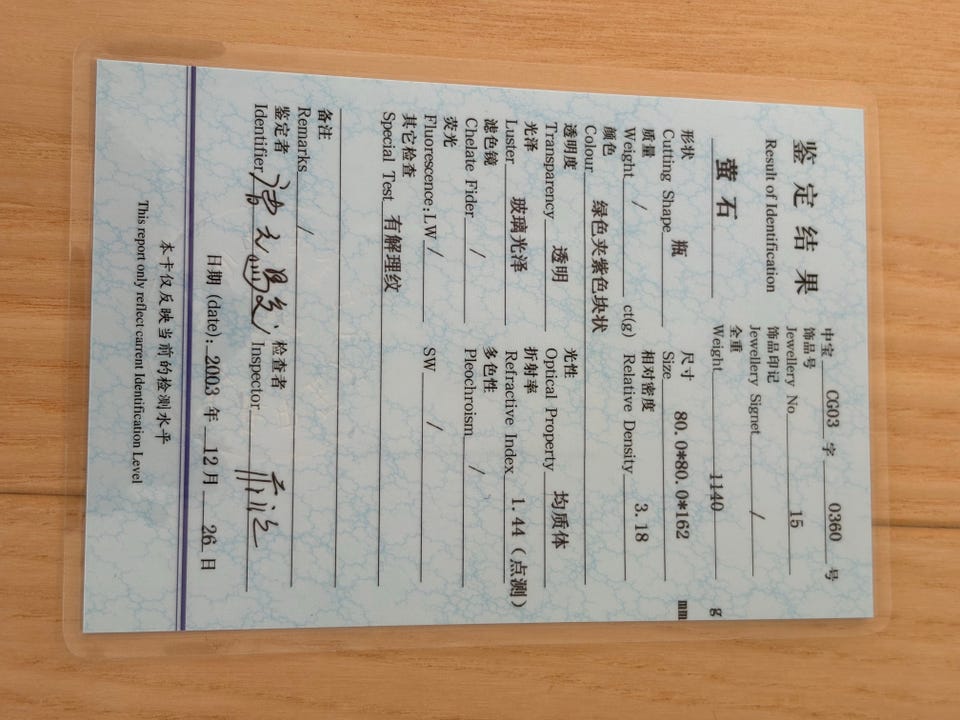 鉴定结果
Result of Identification
中宝 CG03 字 0360 号
饰品号
Jewellery No. 15
饰品印记
Jewellery Signet /
萤石
全重
Weight 1140 g
形状
Cutting Shape 瓶
尺寸
Size 80.0*80.0*162 mm
质量
Weight / ct(g)
相对密度
Relative Density 3.18
颜色
Colour 绿色夹紫色块状
透明度
Transparency 透明
光性
Optical Property 均质体
光泽
Luster 玻璃光泽
折射率
Refractive Index 1.44（点测）
滤色镜
Chelate Fider /
多色性
Pleochroism /
荧光
Fluorescence:LW / SW /
其它检查
Special Test 有解理纹
备注
Remarks /
鉴定者
Identifier
检查者
Inspector
日期 (date): 2003 年 12 月 26 日
本卡仅反映当前的检测水平
This report only reflect carrent Identification Level